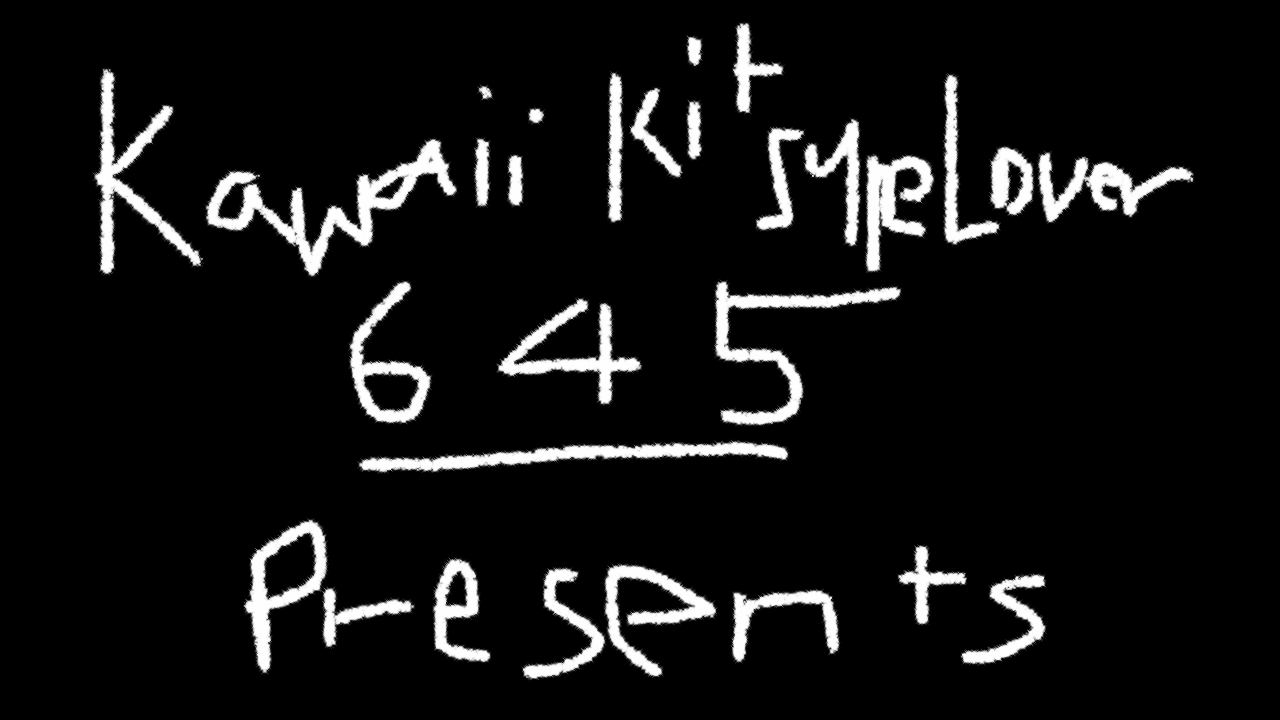 Kawaii KitsypeLover
645
Presents